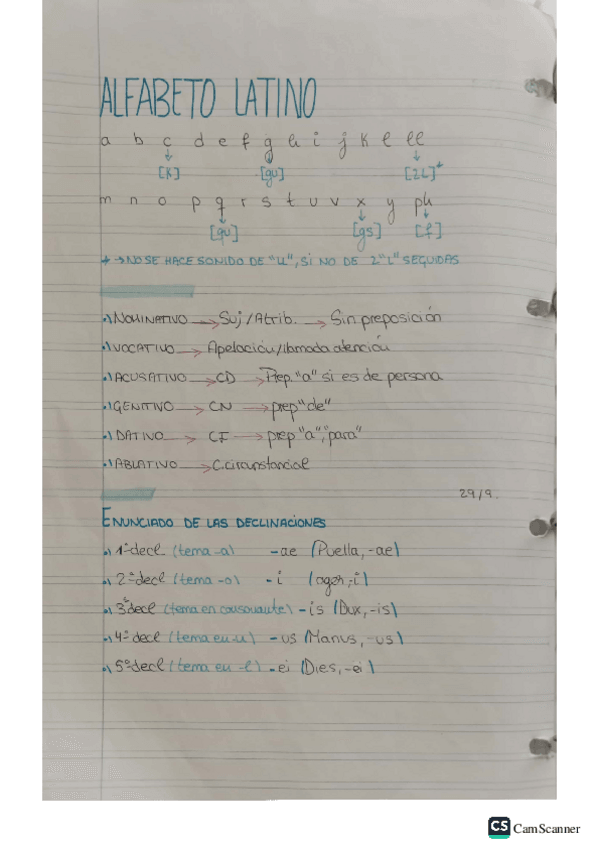 ALFABETO LATINO
a b c d e f g h i j k l ll
↓ ↓ ↓
[K] [gu] [2L]*
m n o p q r s t u v x y ph
↓ ↓ ↓
[qu] [gs] [f]
* → NO SE HACE SONIDO DE "LL", SI NO DE 2 "L" SEGUIDAS
•) NOMINATIVO → Suj/Atrib. → Sin preposición
•) VOCATIVO → Apelación/llamada atención
•) ACUSATIVO → CD → Prep. "a" si es de persona
•) GENITIVO → CN → prep "de"
•) DATIVO → CI → prep "a", "para"
•) ABLATIVO → C.circunstancial
29/9.
ENUNCIADO DE LAS DECLINACIONES
•) 1ªdecl. (tema -a) -ae (Puella, -ae)
•) 2ªdecl (tema -o) -i (ager, -i)
•) 3ªdecl (tema en consonante) -is (Dux, -is)
•) 4ªdecl (tema en -u) -us (Manus, -us)
•) 5ªdecl (tema en -e) -ei (Dies, -ei)
CS CamScanner